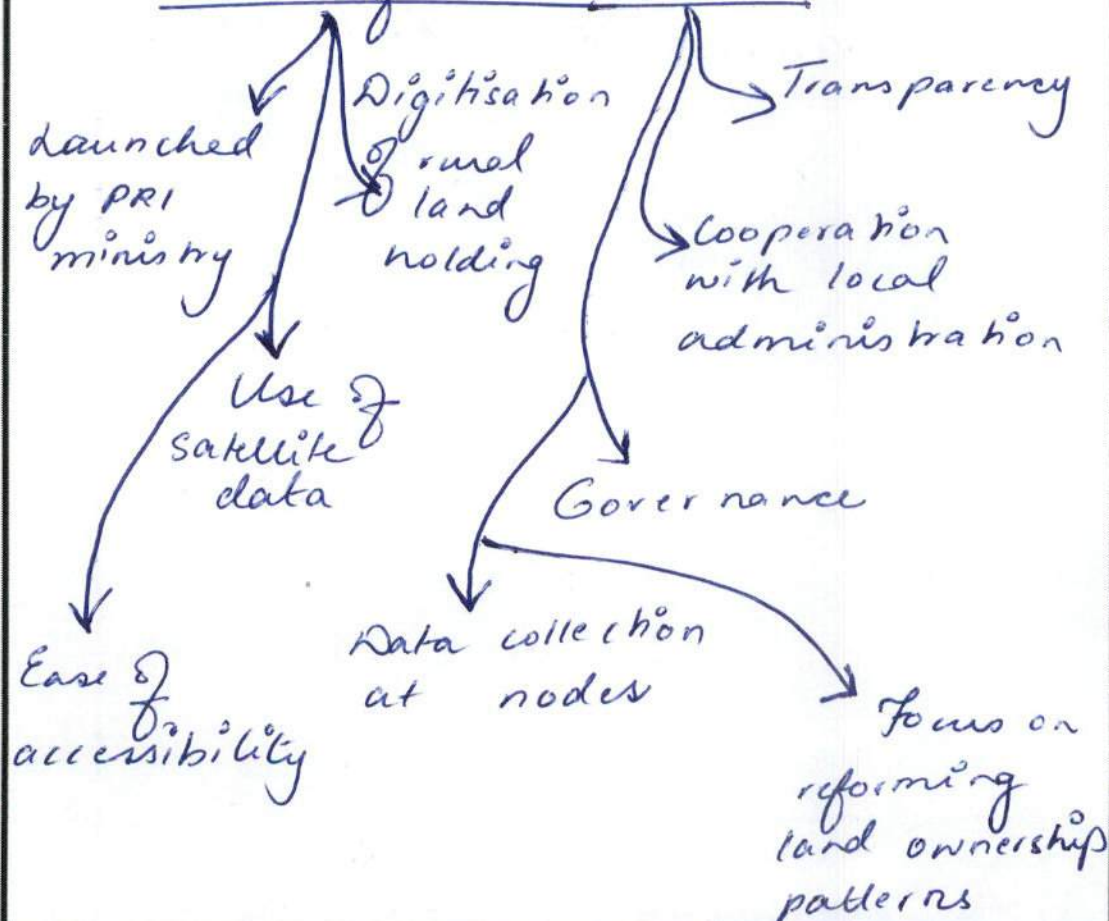 Launched
by PRI
ministry
Digitisation
of rural
land
holding
Use of
satellite
data
Ease of
accessibility
Transparency
Cooperation
with local
administration
Governance
Data collection
at nodes
Focus on
reforming
land ownership
patterns